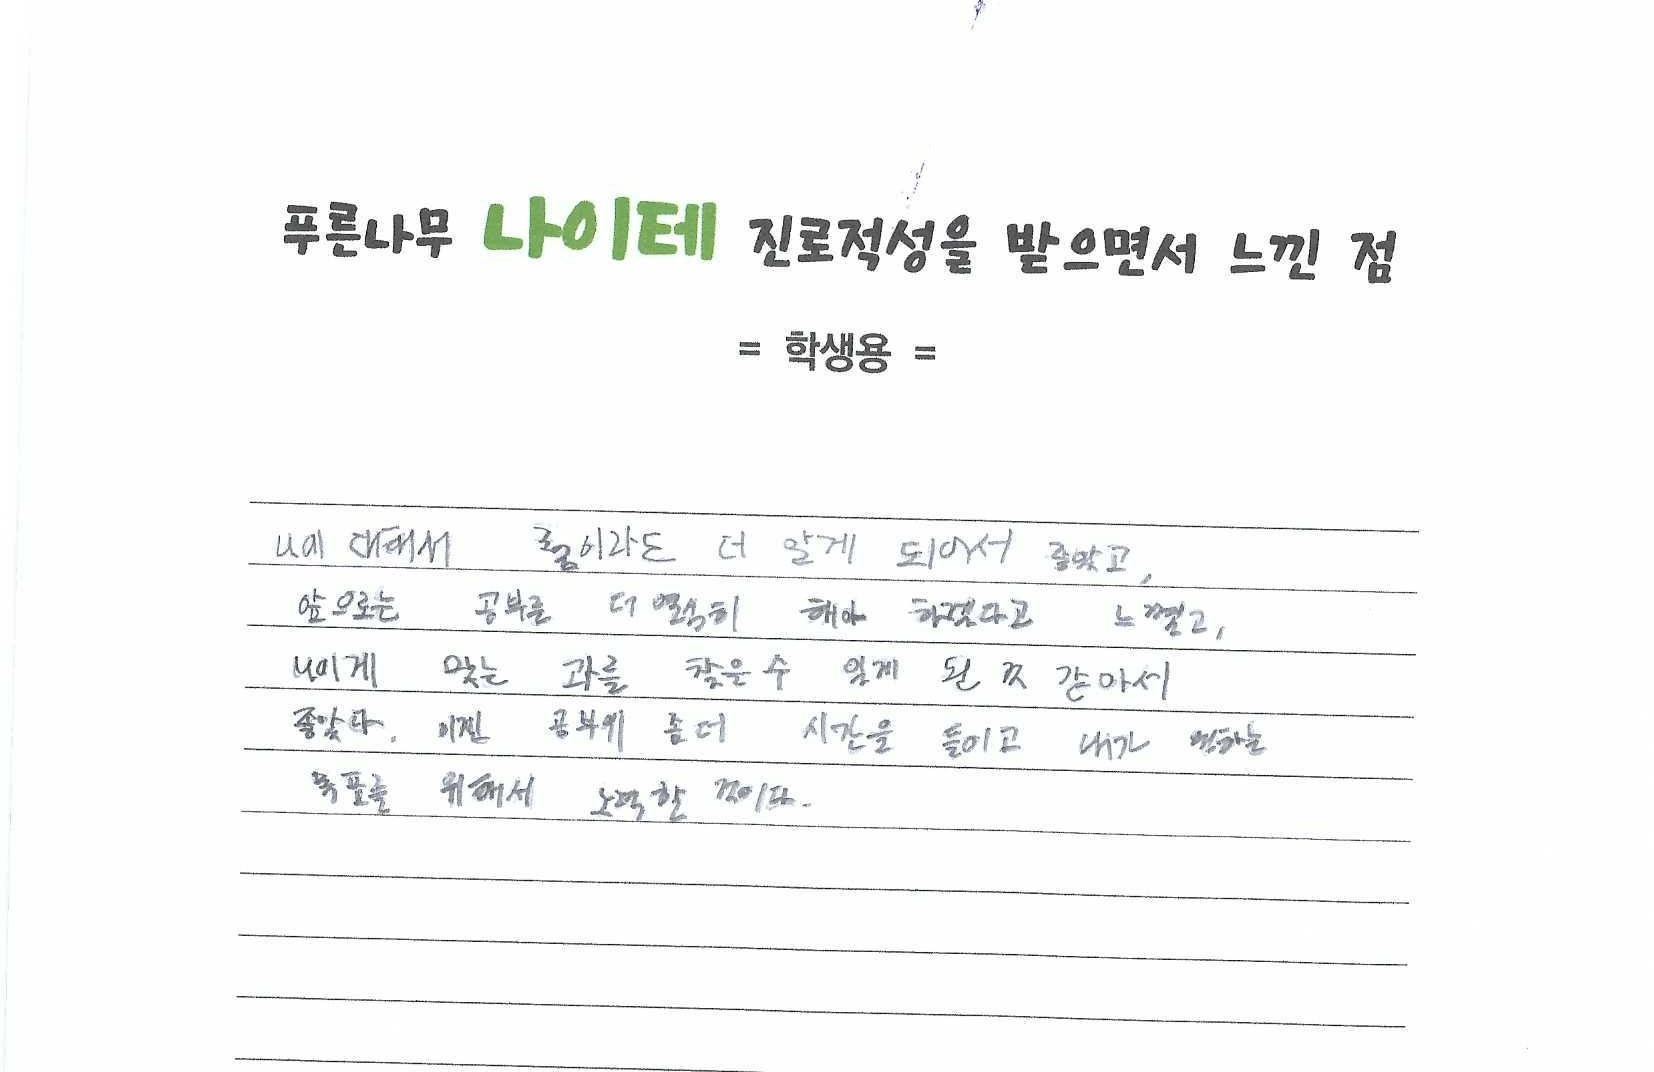 푸른나무 나이테 진로적성을 받으면서 느낀 점
= 학생용 =
나에 대해서 좀이라도 더 알게 되어서 좋았고,
앞으로는 공부를 더 열심히 해야 하겠다고 느꼈고,
나에게 맞는 과를 찾을 수 있게 된 것 같아서
좋았다. 이젠 공부에 좀 더 시간을 들이고 내가 원하는
목표를 위해서 노력할 것이다.